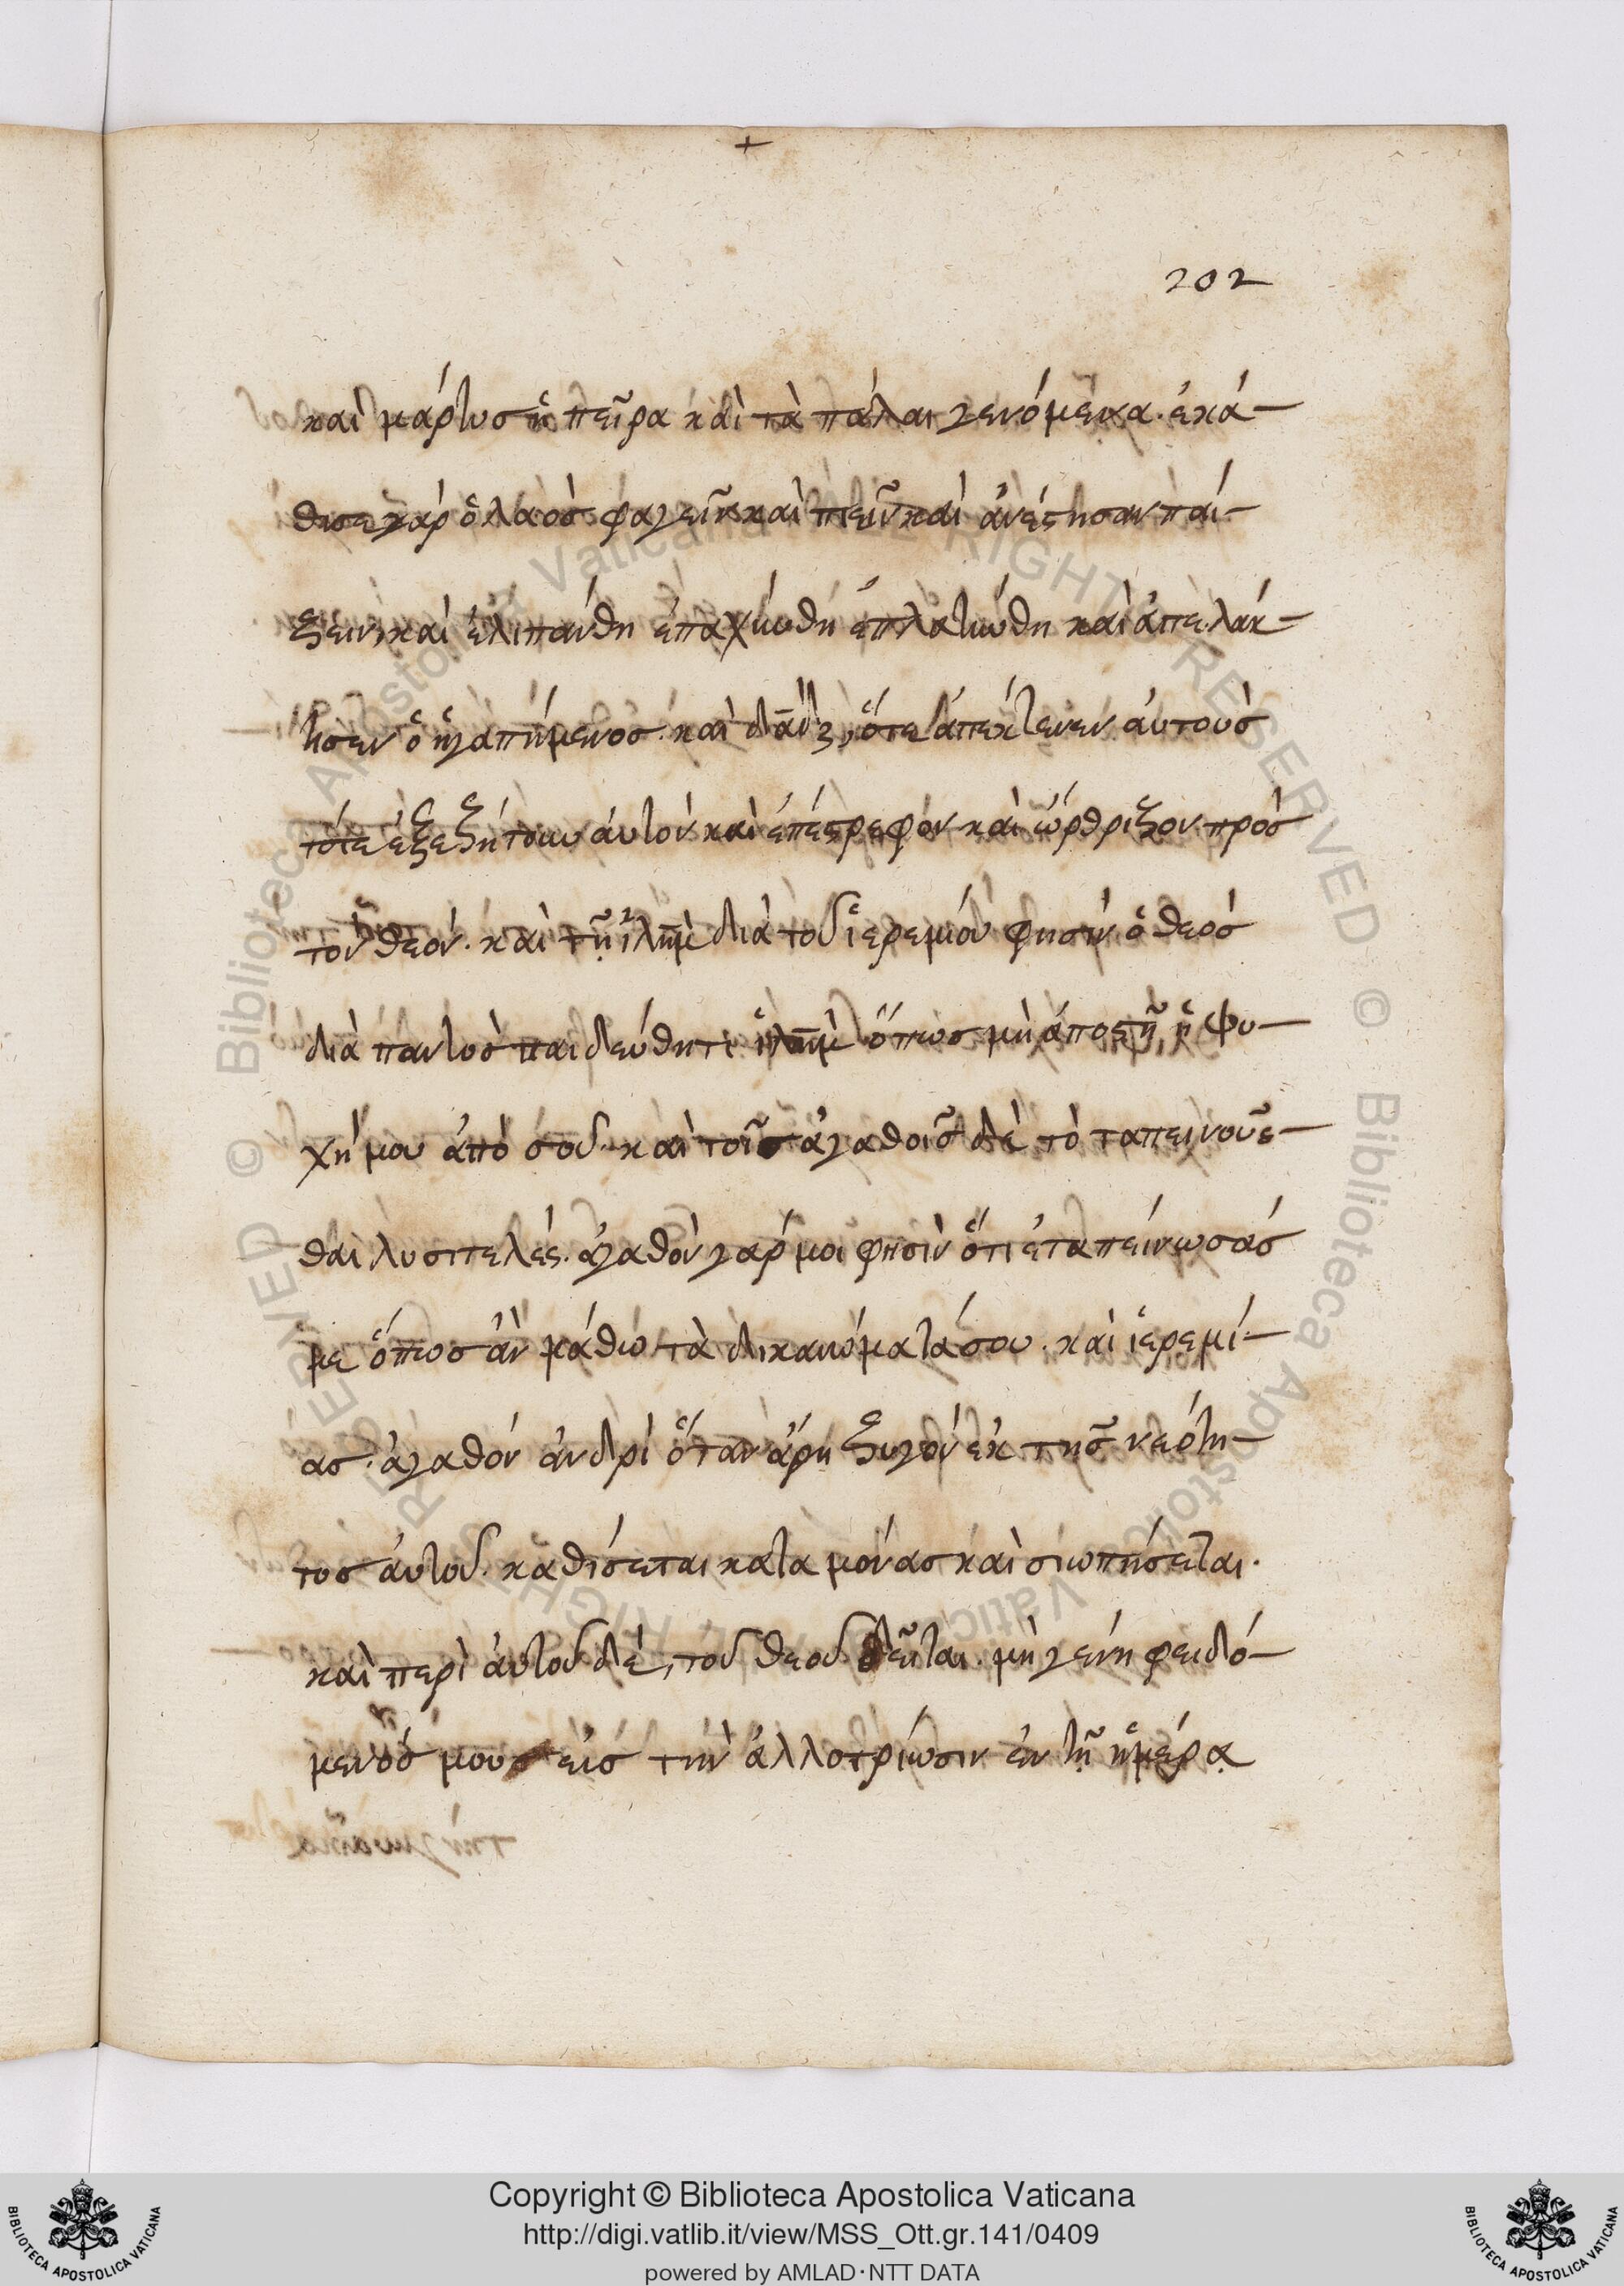 202
καὶ μάρτυς ἡ πεῖρα καὶ τὰ πάλαι γενόμενα. ἐκά-
θισε γὰρ ὁ λαὸς φαγεῖν καὶ πιεῖν καὶ ἀνέστησαν παί-
ζειν καὶ ἐλιπάνθη ἐπαχύνθη ἐπλατύνθη καὶ ἀπελάκ-
τησεν ὁ ἠγαπημένος. καὶ δᾱδ, ὅτε ἀπέκτενεν αὐτοὺς
τότε ἐξεζήτουν αὐτὸν καὶ ἐπέστρεφον καὶ ὤρθριζον πρὸς
τὸν θεόν. καὶ τῇ ἰλῆμ διὰ τοῦ ἱερεμίου φησὶν ὁ θεός
διὰ παντὸς παιδεύθητι ἰλῆμ ὅπως μὴ ἀποστῇ ἡ ψυ-
χή μου ἀπὸ σοῦ. καὶ τοῖς ἀγαθοῖς δὲ τὸ ταπεινοῦσ-
θαι λυσιτελές. ἀγαθόν γάρ μοι φησὶν ὅτι ἐταπείνωσάς
με ὅπως ἂν μάθω τὰ δικαιώματά σου. καὶ ἱερεμί-
ας. ἀγαθόν ἀνδρὶ ὅταν ἄρῃ ζυγόν ἐκ τῆς νεότη-
τος αὐτοῦ. καθίσεται κατα μόνας καὶ σιωπήσεται.
καὶ περὶ αὐτοῦ δέ, τοῦ θεοῦ δεῖται. μὴ γένῃ φειδό-
μενός μου εἰς τὴν ἀλλοτρίωσιν ἐν τῇ ἡμέρᾳ
Copyright © Biblioteca Apostolica Vaticana
http://digi.vatlib.it/view/MSS_Ott.gr.141/0409
powered by AMLAD·NTT DATA
BIBLIOTECA APOSTOLICA VATICANA
BIBLIOTECA APOSTOLICA VATICANA